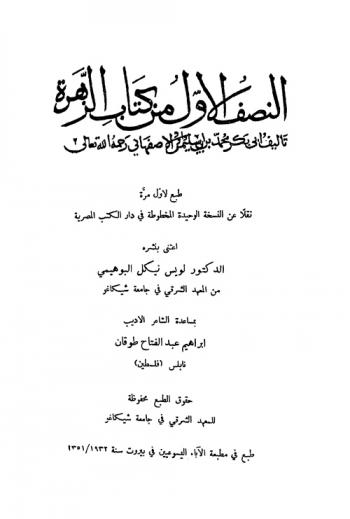 النصف الاوّل من كتاب الزهرة
تاليف ابى بكر محمد بن ابى سليمن الاصفهاني رحمه الله تعالى
طبع لاول مرَّة
نقلًا عن النسخة الوحيدة المخطوطة في دار الكتب المصرية
اعتنى بنشره
الدكتور لويس نيكل البوهيمي
من المعهد الشرقي في جامعة شيكاغو
بمساعدة الشاعر الاديب
ابراهيم عبد الفتاح طوقان
نابلس (فلسطين)
حقوق الطبع محفوظة
للمعهد الشرقي في جامعة شيكاغو
طبع في مطبعة الآباء اليسوعيين في بيروت سنة ١٩٣٢/١٣٥١